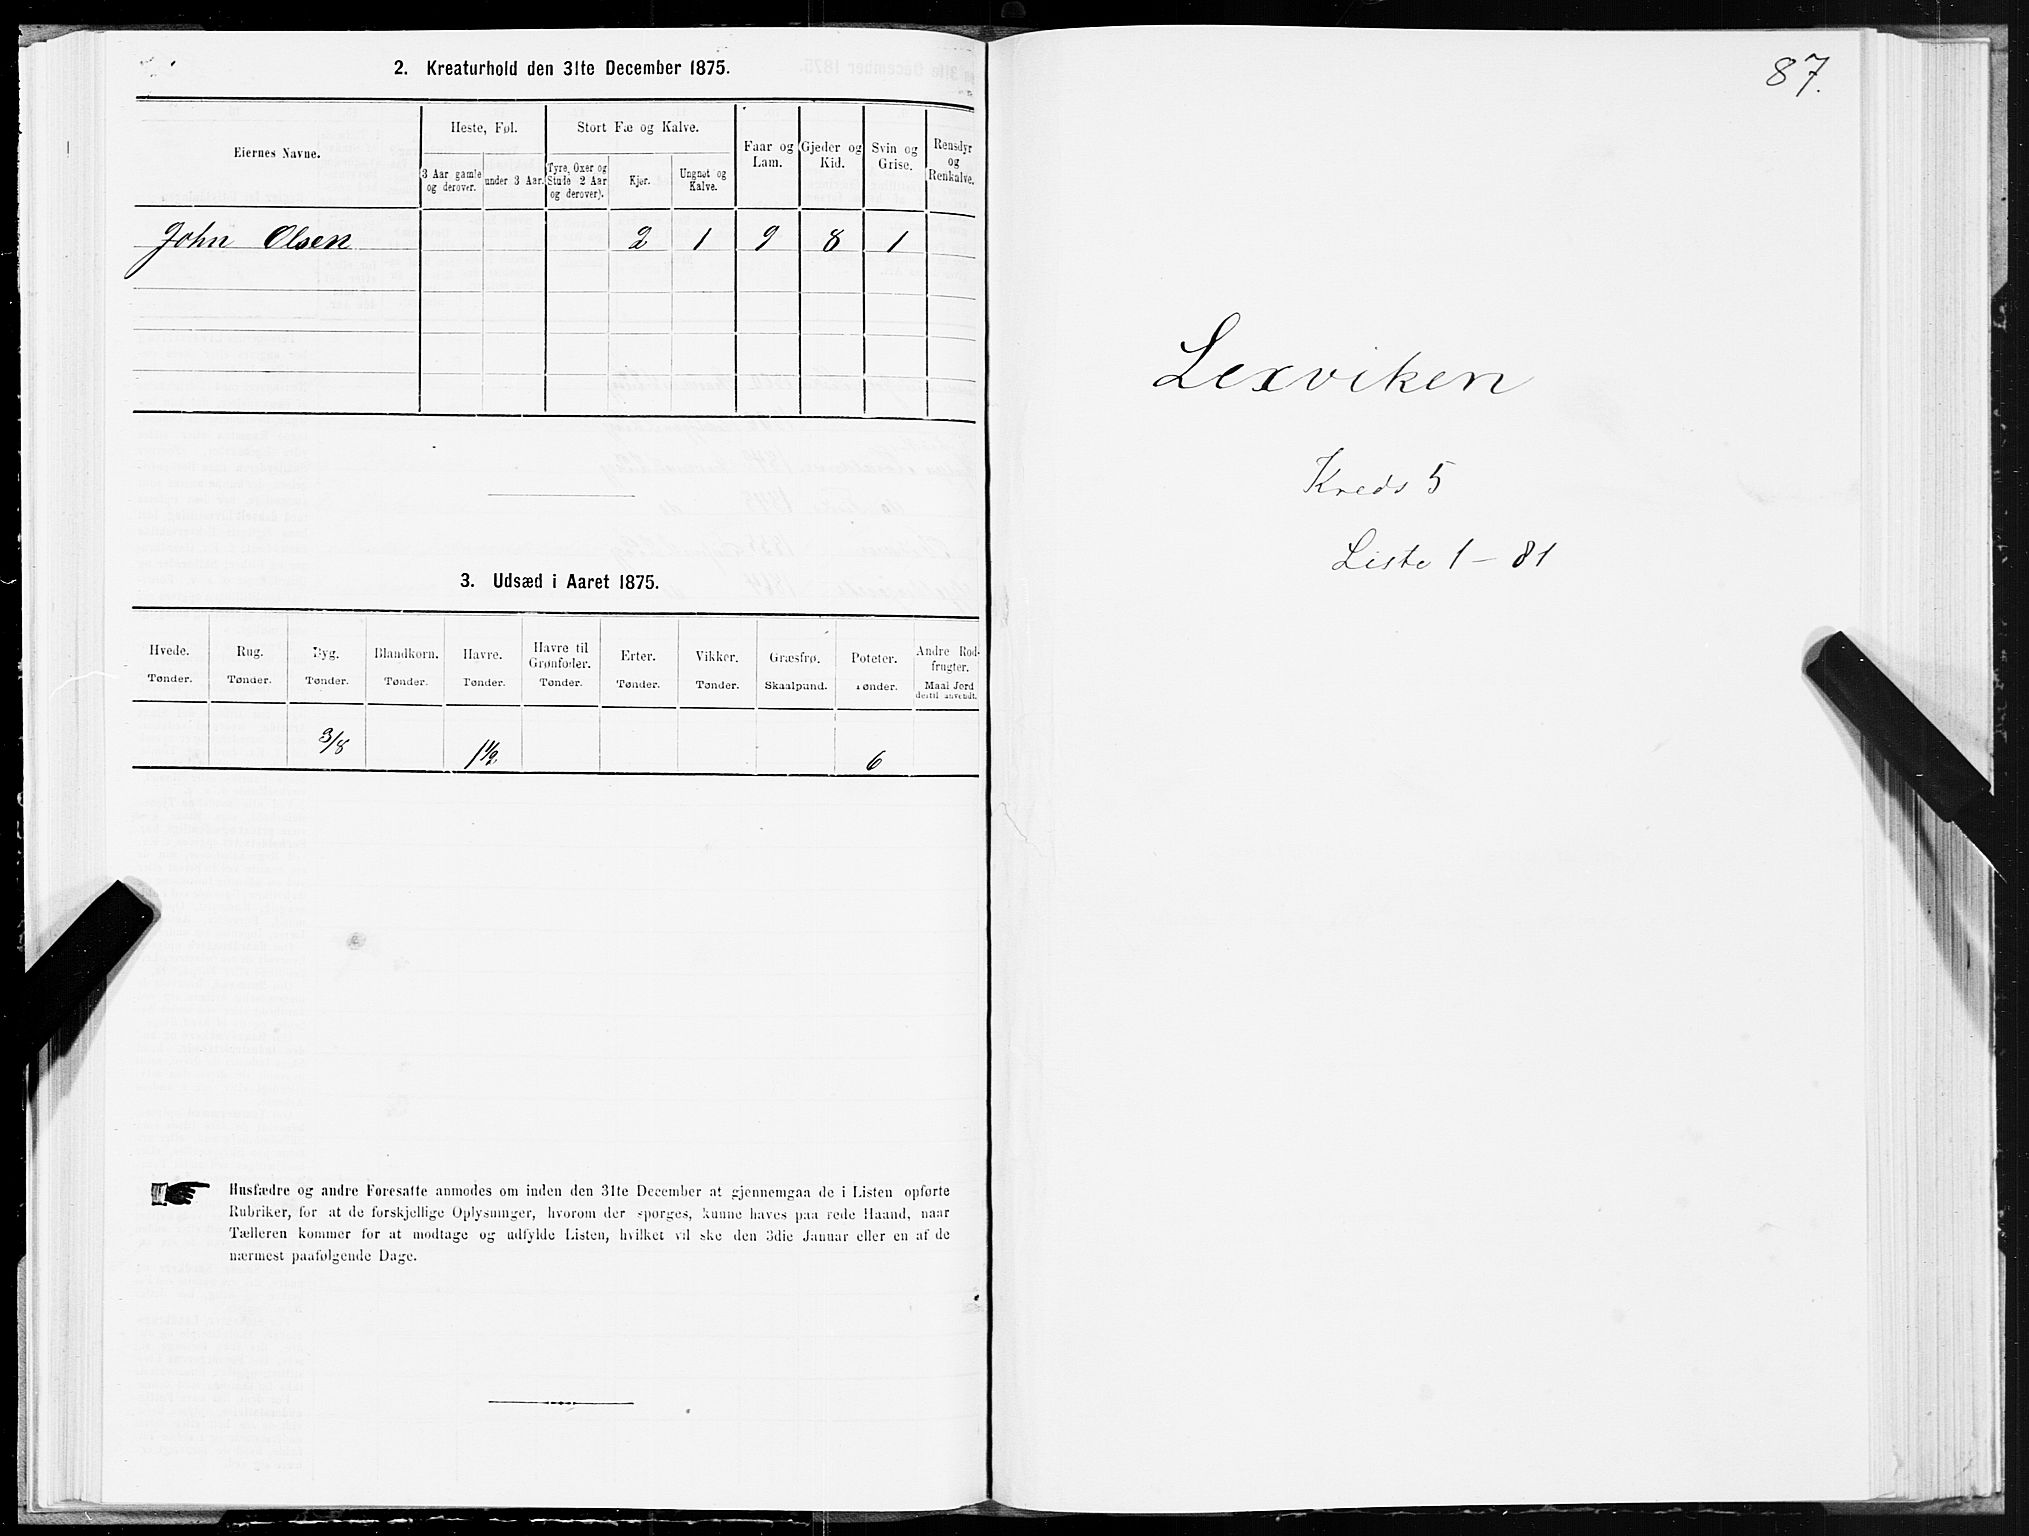 2. Kreaturhold den 31te December 1875.
Eiernes Navne.
Heste, Føl.
Stort Fæ og Kalve.
Faar og Lam.
Gjeder og Kid.
Svin og Grise.
Rensdyr og Renkalve.
3 Aar gamle og derover.
under 3 Aar.
Tyre, Oxer og Stude 2 Aar og derover).
Kjør.
Ungnøt og Kalve.
John Olsen 2 1 9 8 1
3. Udsæd i Aaret 1875.
Hvede. Rug. Byg. Blandkorn. Havre. Havre til Grønfoder. Erter. Vikker. Græsfrø. Poteter. Andre Rodfrugter.
Tønder. Tønder. Tønder. Tønder. Tønder. Tønder. Tønder. Tønder. Skaalpund. Tønder. Maal Jord dertil anvendt.
3/8 1 1/2 6
Husfædre og andre Foresatte anmodes om inden den 31te December at gjennemgaa de i Listen opførte
Rubriker, for at de forskjellige Oplysninger, hvorom der spørges, kunne haves paa rede Haand, naar
Tælleren kommer for at modtage og udfylde Listen, hvilket vil ske den 3die Januar eller en af de
nærmest paafølgende Dage.
87.
Lexviken
Kreds 5
Liste 1 - 81